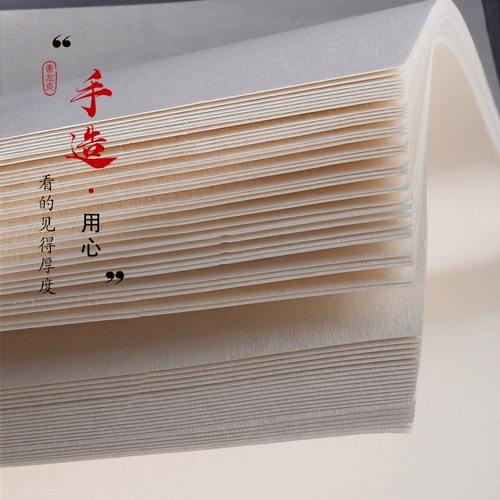 “
善友泉
手造·用心
”
看的见得厚度